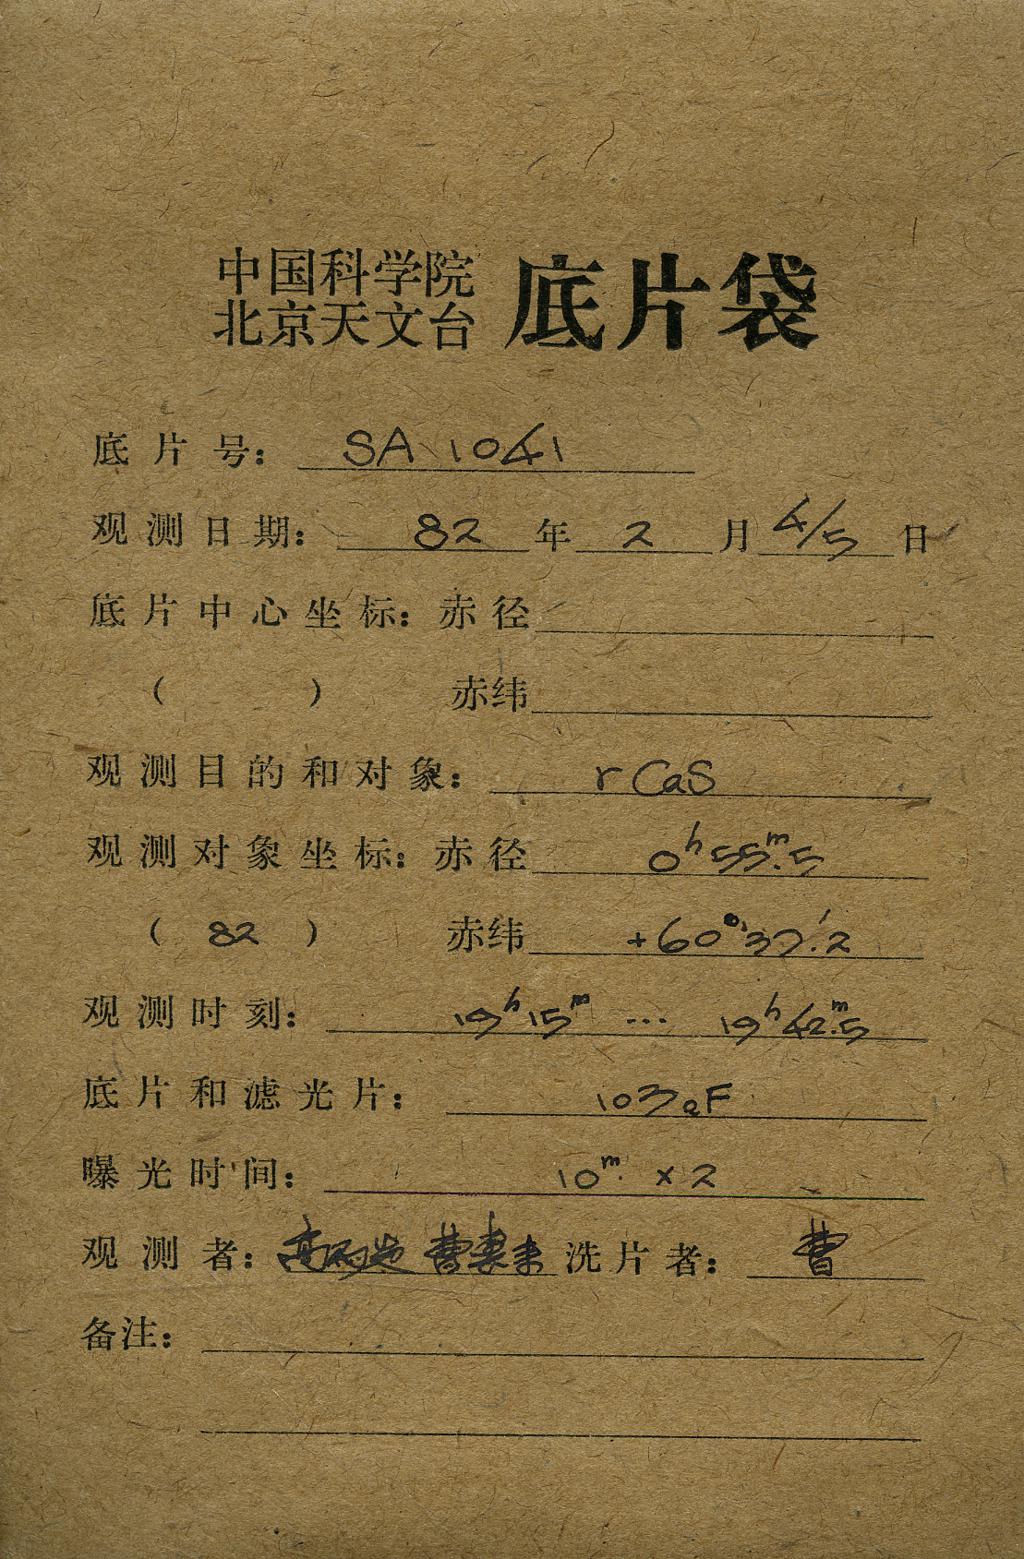 中国科学院
北京天文台 底片袋
底片号: SA 1041
观测日期: 82 年 2 月 4/5 日
底片中心坐标: 赤径
( ) 赤纬
观测目的和对象: r Cas
观测对象坐标: 赤径 0h55m.5
( 82 ) 赤纬 +60°37'.2
观测时刻: 19h15m ... 19h42m.5
底片和滤光片: 103aF
曝光时间: 10m. × 2
观测者: 曹 洗片者: 曹
备注: